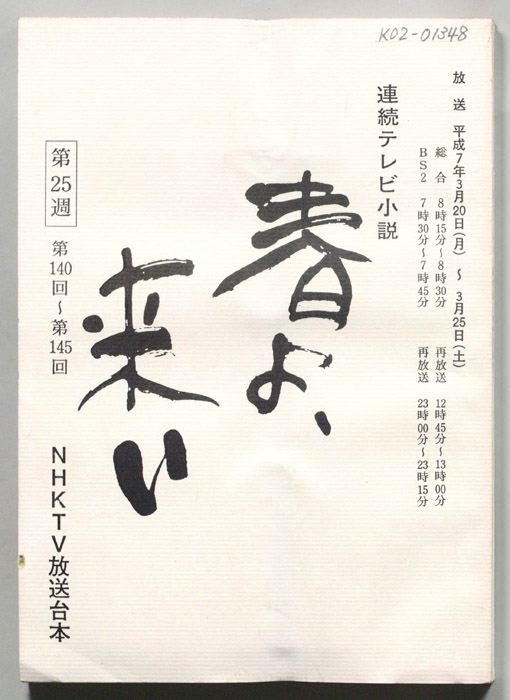 K02-01348
放送 平成7年3月20日(月) ~ 3月25日(土)
総合 8時15分~8時30分 再放送 12時45分~13時00分
BS2 7時30分~7時45分 再放送 23時00分~23時15分
連続テレビ小説
春よ、
来い
第25週 第140回~第145回
NHKTV放送台本